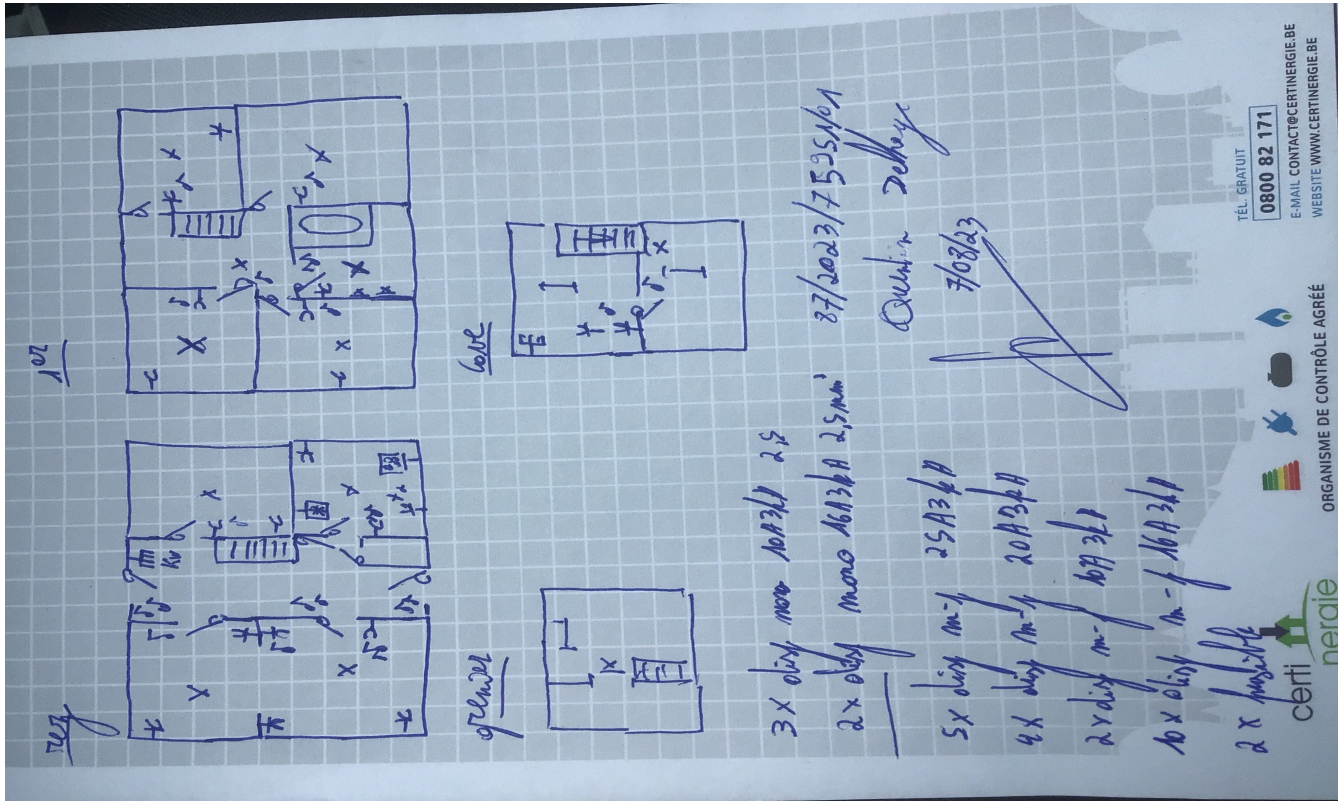 rez
1er
grenier
cave
3x disj mono 10A 3kA 2,5
2x disj mono 16A 3kA 2,5mm²
5x disj m-f 25A 3kA
4x disj m-f 20A 3kA
2x disj m-f 10A 3kA
10x disj m-f 16A 3kA
2x fusible
Quentin
7/08/23
certi
nergie
ORGANISME DE CONTRÔLE AGRÉÉ
TÉL. GRATUIT
0800 82 171
E-MAIL CONTACT@CERTINERGIE.BE
WEBSITE WWW.CERTINERGIE.BE